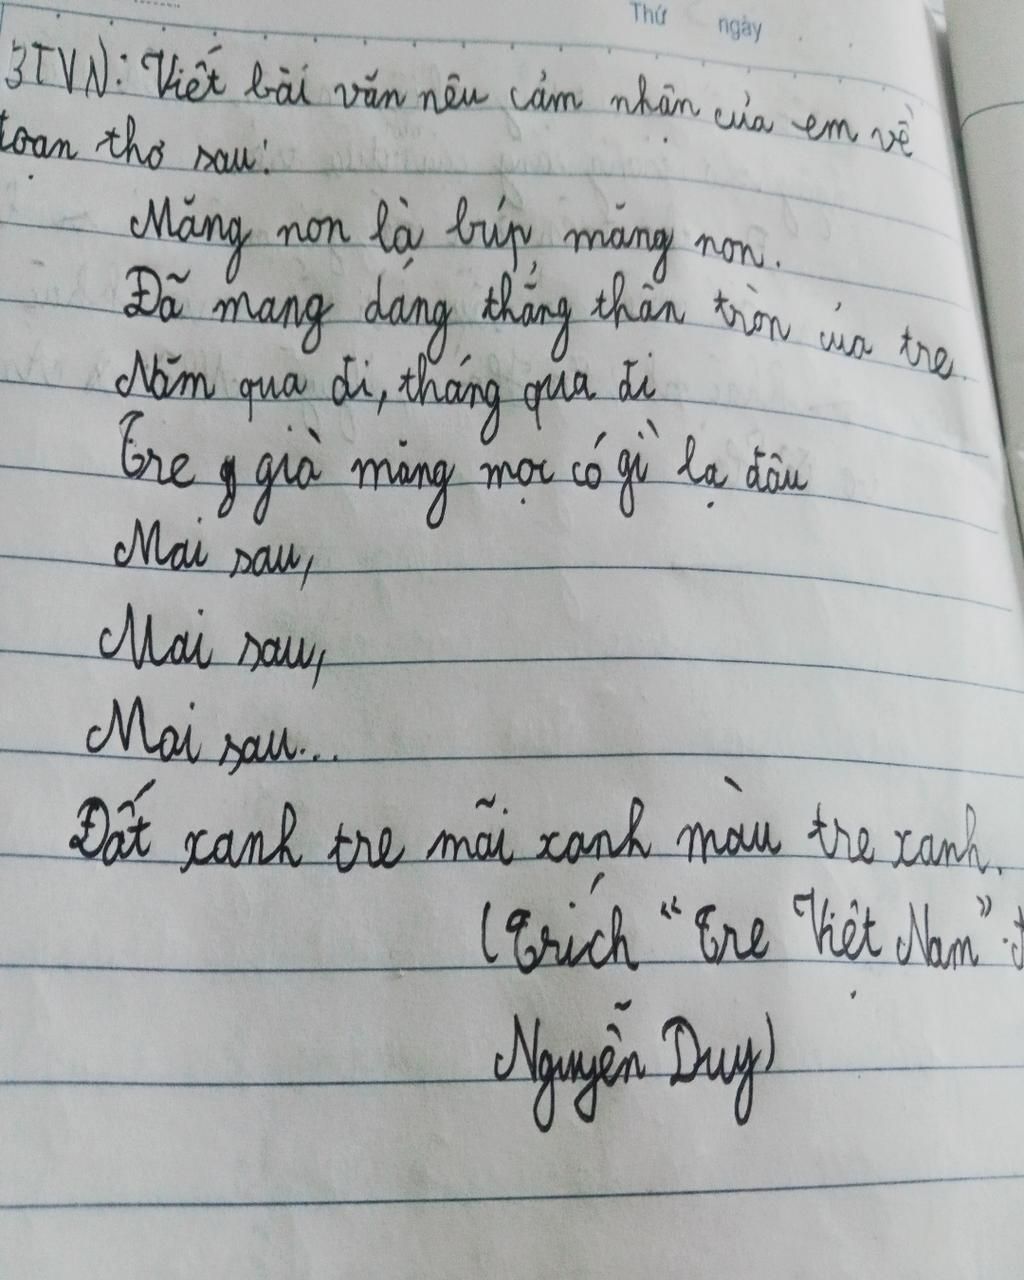 Thứ ngày
BTVN: Viết bài văn nêu cảm nhận của em về
đoạn thơ sau:
Măng non là búp măng non.
Đã mang dáng thẳng thân tròn của tre.
Năm qua đi, tháng qua đi
Tre già măng mọc có gì lạ đâu
Mai sau,
Mai sau,
Mai sau...
Đất xanh tre mãi xanh màu tre xanh.
(Trích "Tre Việt Nam"
Nguyễn Duy)